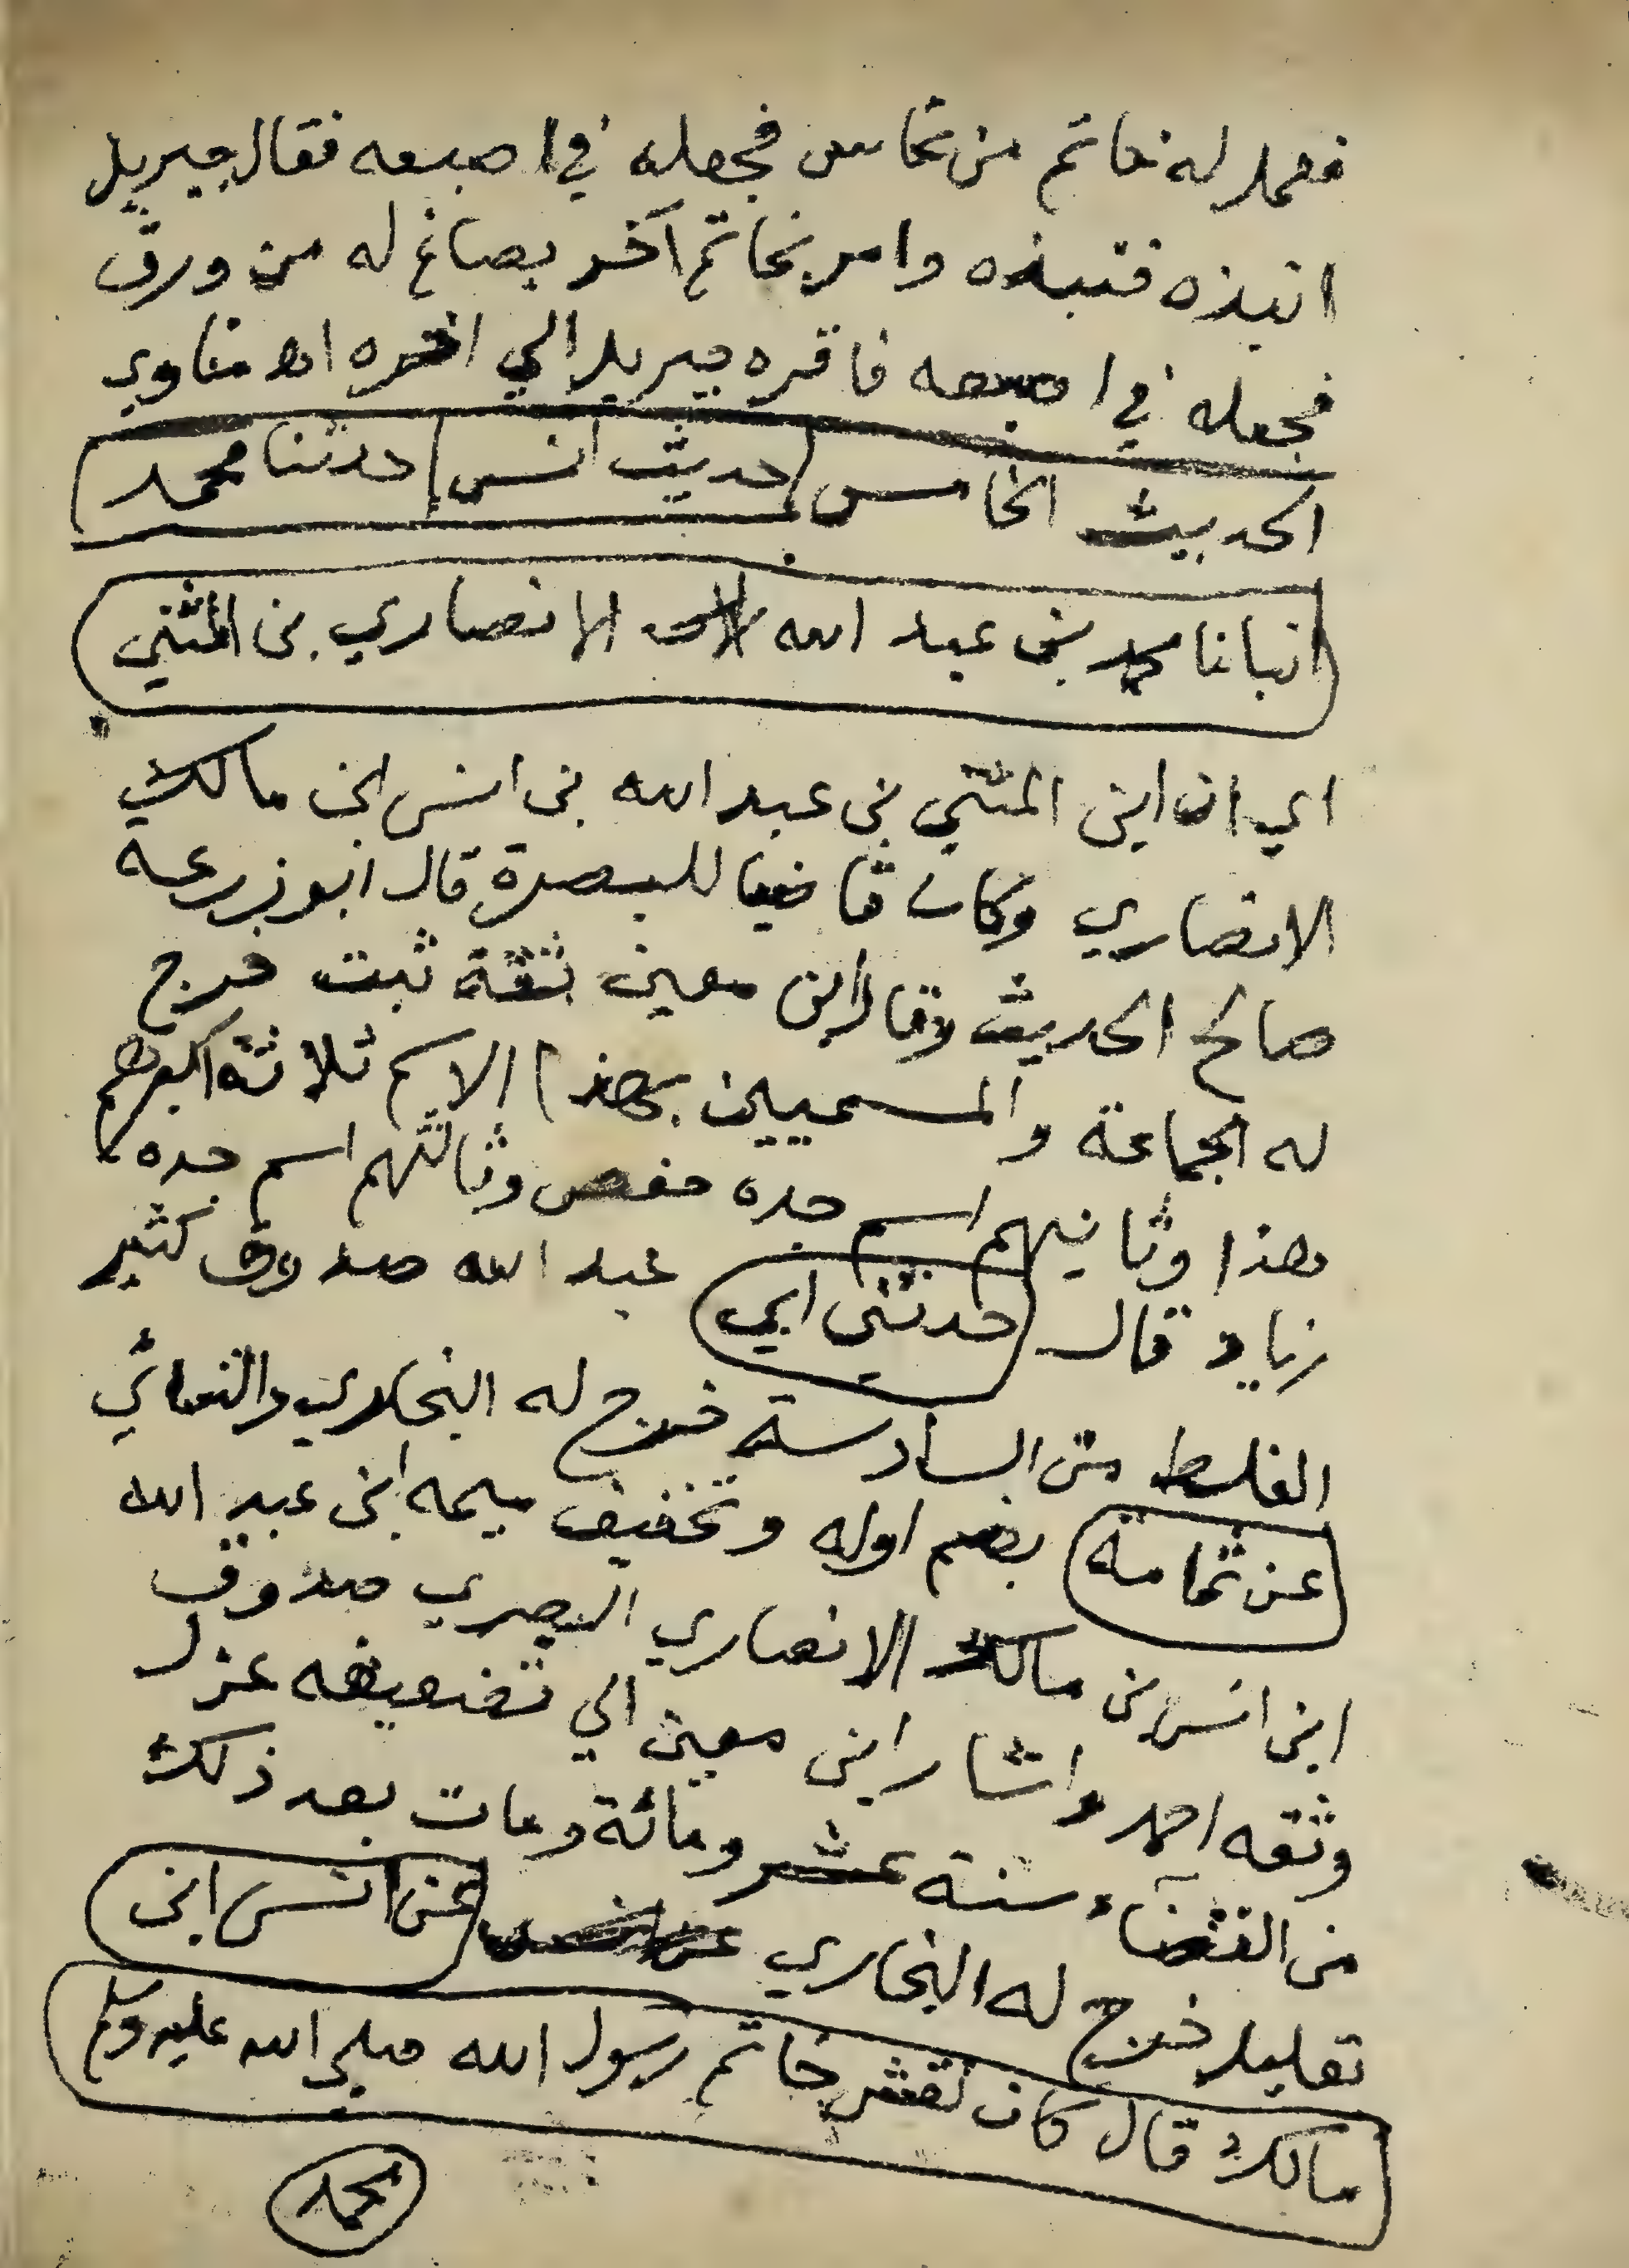 فعمل له خاتم من نحاس فجعله في اصبعه فقال جبريل
انبذه فنبذه وامر بخاتم آخر يصاغ له من ورق
فجعله في اصبعه فاقره جبريل الي اخره اه مناوي
الحديث الخامس حديث انس حدثنا محمد
انبانا محمد بن عبد الله الانصاري بن المثني
اي ان ابن المثني بن عبد الله بن انس بن مالك
الانصاري وكان قاضيا للبصرة قال ابو زرعة
صالح الحديث وقال ابن معين ثقة ثبت خرج
له الجماعة والمسميين بهذا الاسم ثلاثة اكبرهم
هذا وثانيهم اسم جده حفص وثالثهم اسم جده
زياد قال حدثني ابي عبد الله صدوق كثير
الغلط من السادسة خرج له البخاري والنسائي
عن ثمامة بضم اوله وتخفيف ميمه ابن عبد الله
ابن انس بن مالك الانصاري البصري صدوق
وثقه احمد واشار ابن معين الي تضعيفه عزل
من القضاء سنة عشر ومائة ومات بعد ذلك
بقليل خرج له البخاري عن انس ابن
مالك قال كان نقش خاتم رسول الله صلي الله عليه وسلم
محمد